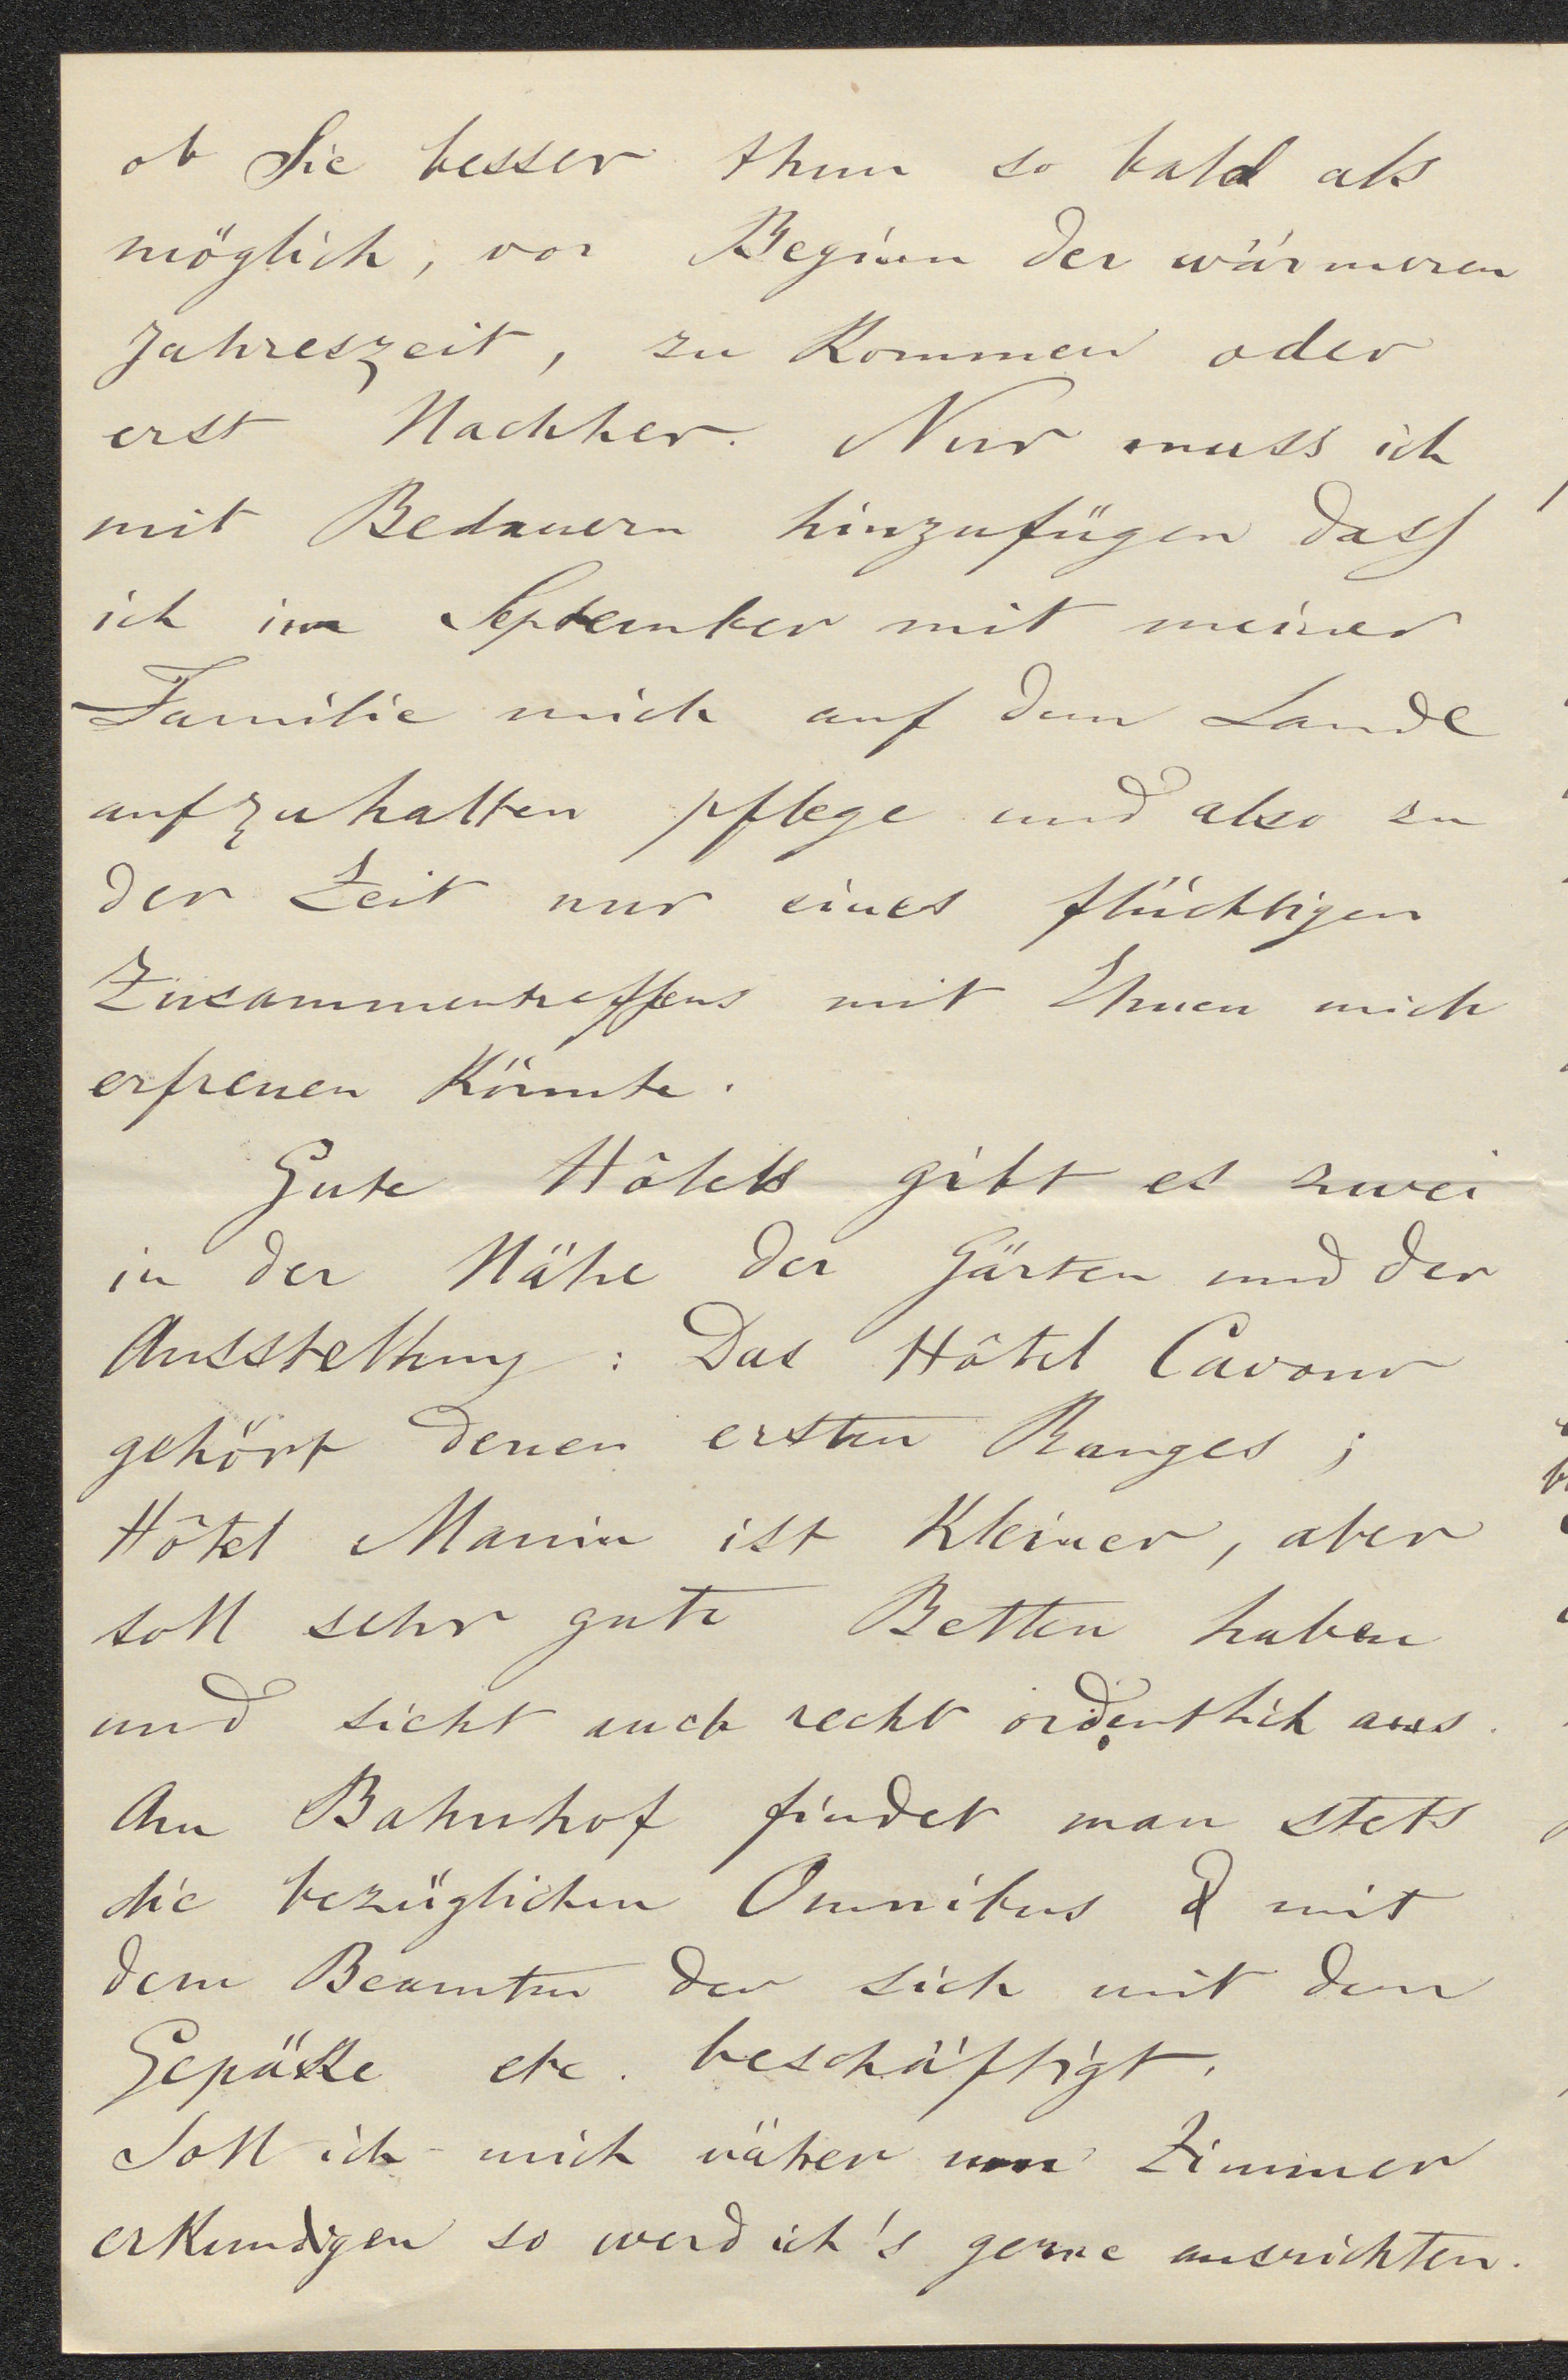 ob Sie besser thun so bald als
möglich, vor Beginn der wärmeren
Jahreszeit, zu Kommen oder
erst Nachher. Nur muss ich
mit Bedauern hinzufügen dass
ich im September mit meiner
Familie mich auf dem Lande
aufzuhalten pflege und also zu
der Zeit nur eines flüchtigen
Zusammentreffens mit Ihnen mich
erfreuen Könnte.
Gute Hôtels gibt es zwei
in der Nähe der Gärten und der
Ausstellung: Das Hôtel Cavour
gehört denen ersten Ranges;
Hôtel Manin ist Kleiner, aber
soll sehr gute Betten haben
und sieht auch recht ordentlich aus.
Am Bahnhof findet man stets
die bezüglichen Omnibus & mit
dem Beamten der sich mit dem
Gepäcke etc. beschäftigt.
Soll ich mich näher um Zimmer
erkundigen so werd ich's gerne ausrichten.